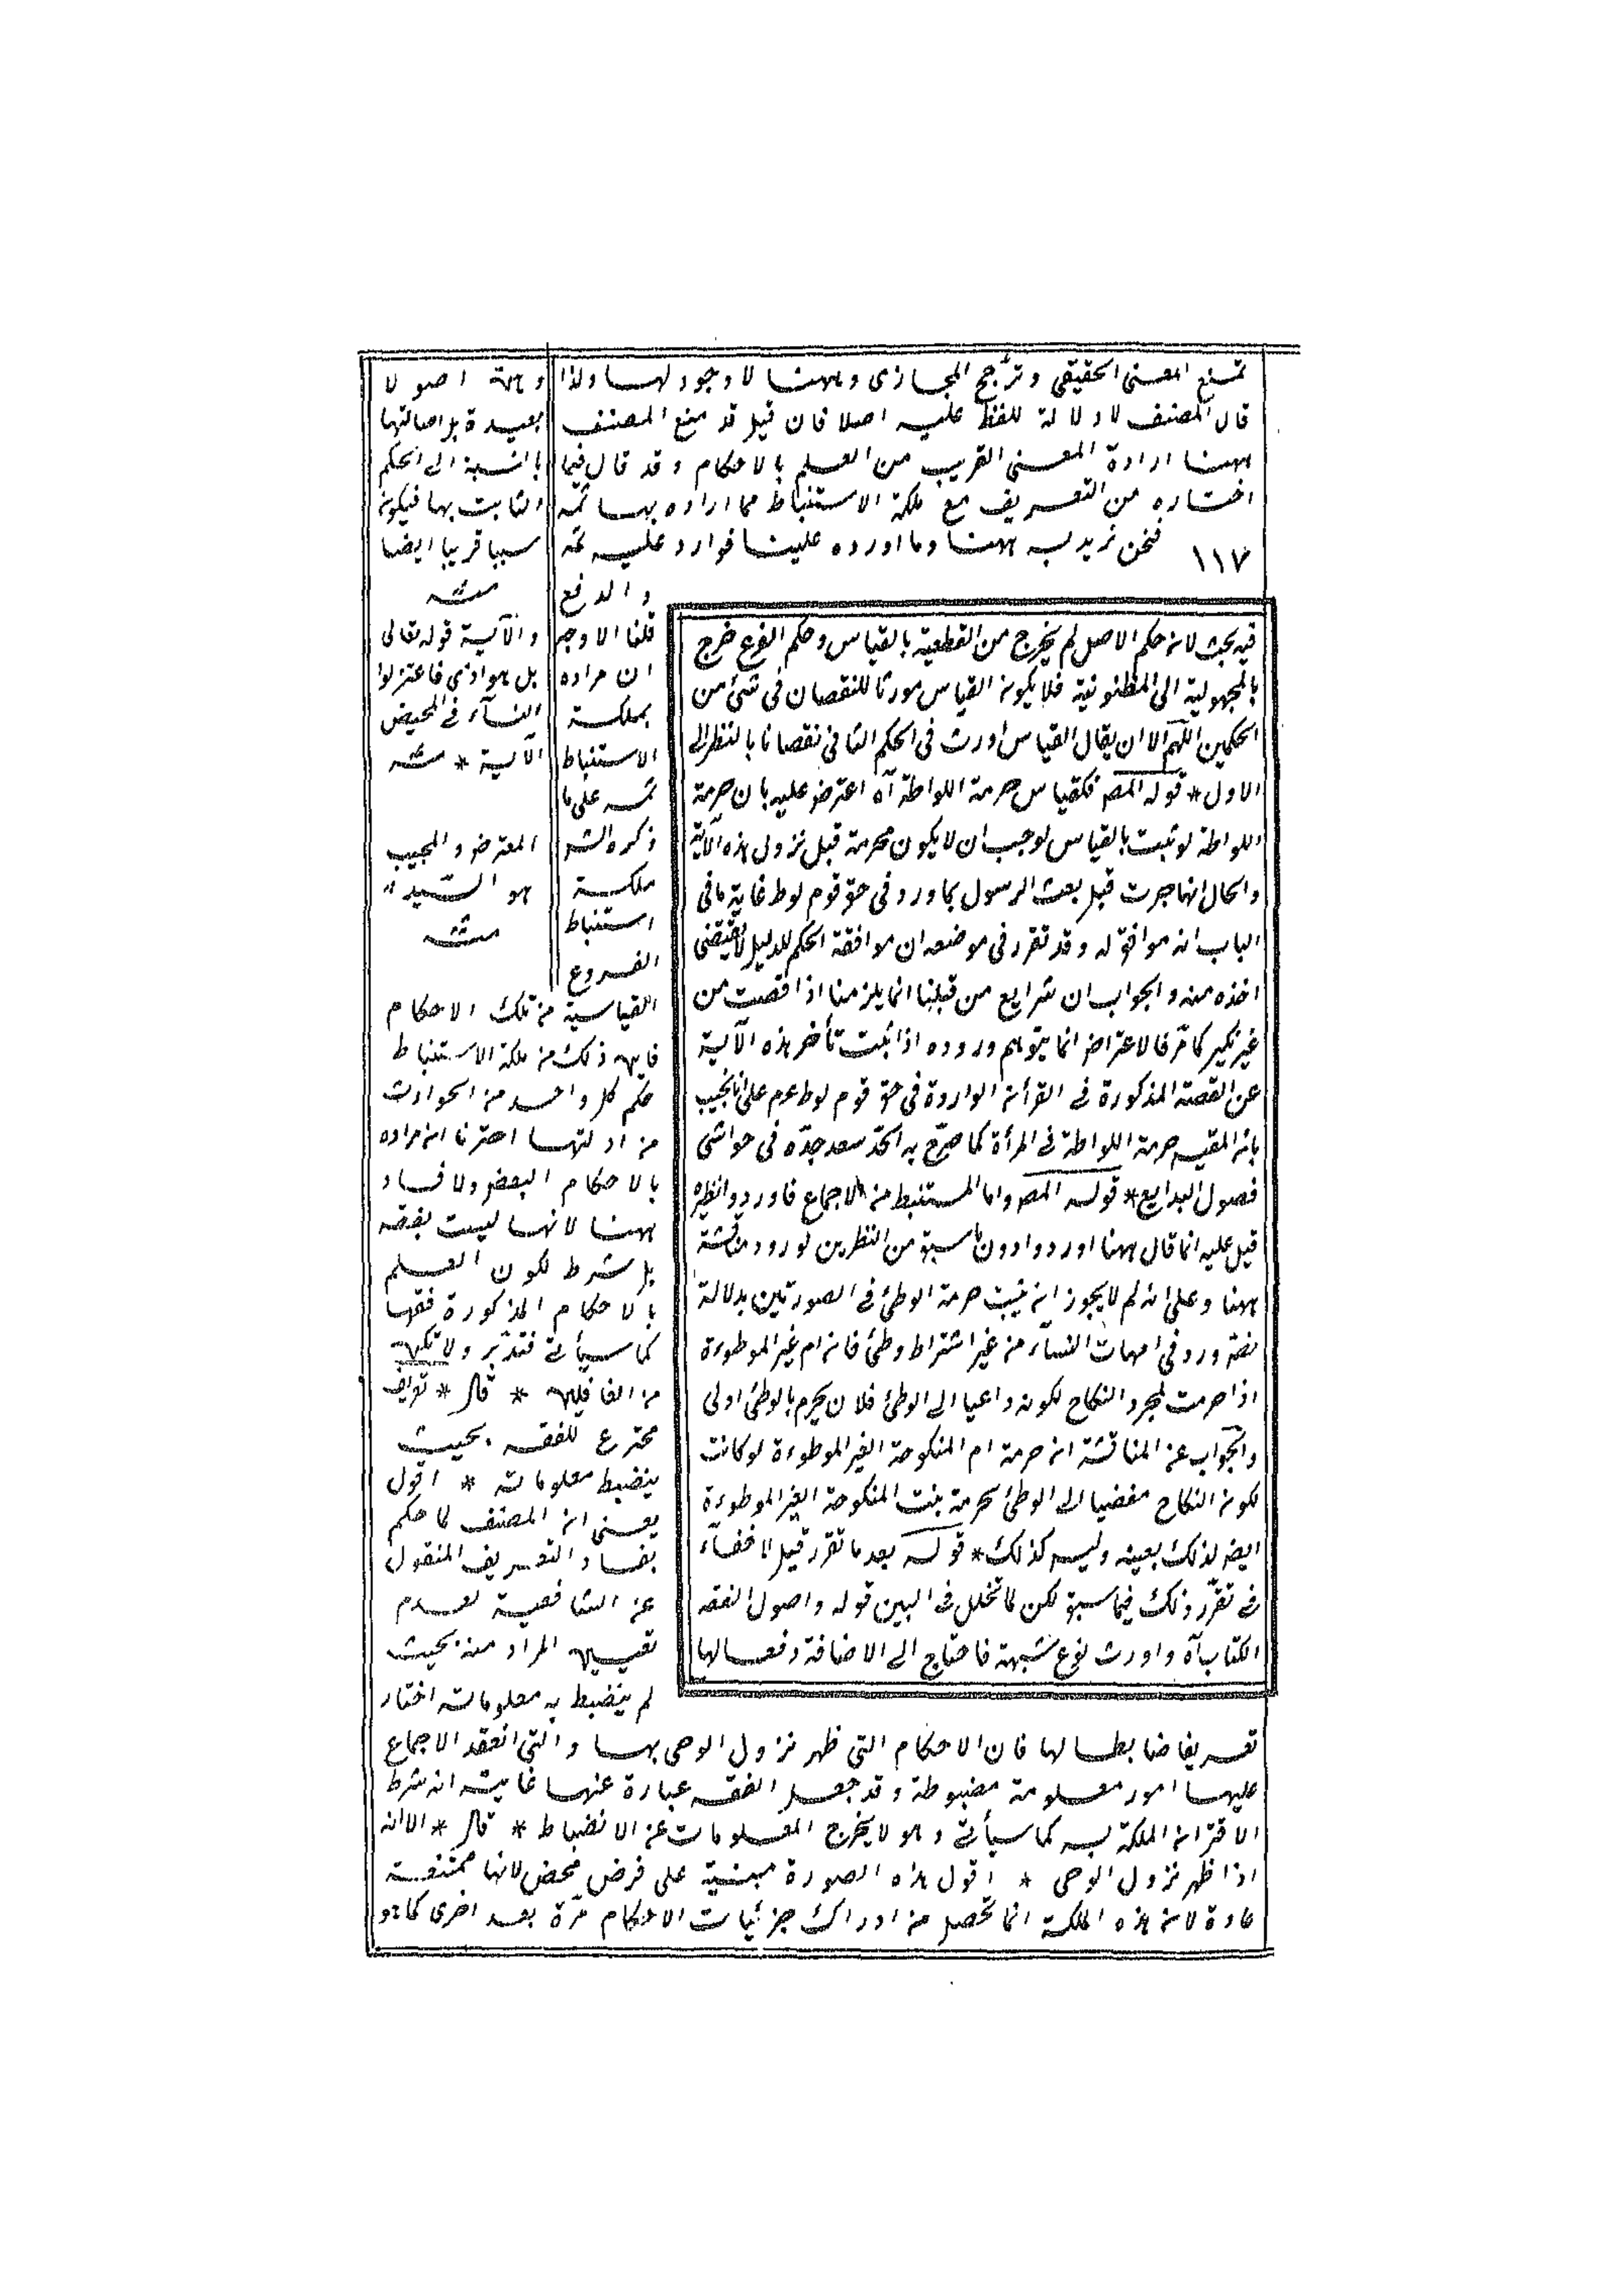 تمنع المعنى الحقيقي وترجح المجازى وههنا لا وجود لهما ولذا
قال المصنف لا دلالة للفظ عليه اصلا فان قيل قد منع المصنف
ههنا ارادة المعنى القريب من العلم بالاحكام وقد قال فيما
اختاره من التعريف مع ملكة الاستنباط مما اراده بها ثمه
١١٧ فنحن نريد به ههنا وما اورده علينا فوارد عليه ثمه
والدفع
قلنا الاوجه
ان مراده
بملكة
الاستنباط
ثمه على ما
ذكره الش
ملكة
استنباط
الفروع
القياسية من تلك الاحكام
فاين ذلك من ملكة الاستنباط
حكم كل واحد من الحوادث
من ادلتها اخترنا ان مراده
بالاحكام البعض ولا فساد
ههنا لانها ليست بفقه
بل شرط لكون العلم
بالاحكام المذكورة فقها
كما سيأتى فتدبر ولا تكن
من الغافلين * قال * تعريف
مخترع للفقه بحيث
ينضبط معلوماته * اقول
يعنى ان المصنف لما حكم
بفساد التعريف المنقول
عن الشافعية لعدم
تعيين المراد منه بحيث
لم ينضبط به معلوماته اختار
تعريفا ضابطا لها فان الاحكام التى ظهر نزول الوحى بها والتى انعقد الاجماع
عليها امور معلومة مضبوطة وقد جعل الفقه عبارة عنها غايته انه شرط
الاقتران الملكة به كما سيأتى وهو لا يخرج المعلومات عن الانضباط * قال * الا انه
اذا ظهر نزول الوحى * اقول هذه الصورة مبنية على فرض محض لانها ممتنعة
عادة لان هذه الملكة انما تحصل من ادراك جزئيات الاحكام مرة بعد اخرى كما هو
فيه بحث لان حكم الاصل لم يخرج من القطعية بالقياس وحكم الفرع خرج
بالمجهولية الى المظنونية فلا يكون القياس مورثا للنقصان فى شئ من
الحكمين اللهم الا ان يقال القياس أورث فى الحكم الثانى نقصانا بالنظر الى
الاول * قوله المص فكقياس حرمة اللواطة آه اعترض عليه بان حرمة
اللواطة لو ثبت بالقياس لوجب ان لا يكون محرمة قبل نزول هذه الآية
والحال انها حرمت قبل بعث الرسول بما ورد فى حق قوم لوط غاية ما فى
الباب انه موافق له وقد تقرر فى موضعه ان موافقة الحكم للدليل لا يقتضى
اخذه منه والجواب ان شرايع من قبلنا انما يلزمنا اذا قصت من
غير نكير كما مر فالاعتراض انما يتوهم وروده اذا ثبت تأخر هذه الآية
عن القصة المذكورة فى القرأن الواردة فى حق قوم لوط عم على انا نجيب
بان المقيس حرمة اللواطة فى المرأة كما صرح به المحد سعد جده فى حواشى
فصول البدايع * قوله المص واما المستنبط من الاجماع فاوردوا نظيره
قيل عليه انما قال ههنا اوردوا دون ما سبق من النظرين لورود مناقشة
ههنا وعلى انه لم لا يجوز ان يثبت حرمة الوطئ فى الصورتين بدلالة
نص ورد فى امهات النساء من غير اشتراط وطئ فان ام غير الموطوءة
اذا حرمت لمجرد النكاح لكونه داعيا الى الوطئ فلان يحرم بالوطئ اولى
والجواب عن المناقشة ان حرمة ام المنكوحة الغير الموطوءة لو كانت
لكون النكاح مفضيا الى الوطئ لحرمة بنت المنكوحة الغير الموطوءة
ايضا لذلك بعينه وليس كذلك * قوله بعد ما تقرر قيل لا خفاء
فى تقرر ذلك فيما سبق لكن لما تخلل فى البين قوله واصول الفقه
الكتاب آه واورث نوع شبهة فاحتاج الى الاضافة دفعا لها
وهذه اصولا
بعيدة بل اصالتها
بالنسبة الى الحكم
الثابت بها فيكون
سببا قريبا ايضا
منه
والآية قوله تعالى
بل هو اذى فاعتزلوا
النساء فى المحيض
الآية * منه
المعترض والمجيب
هو السيد
منه